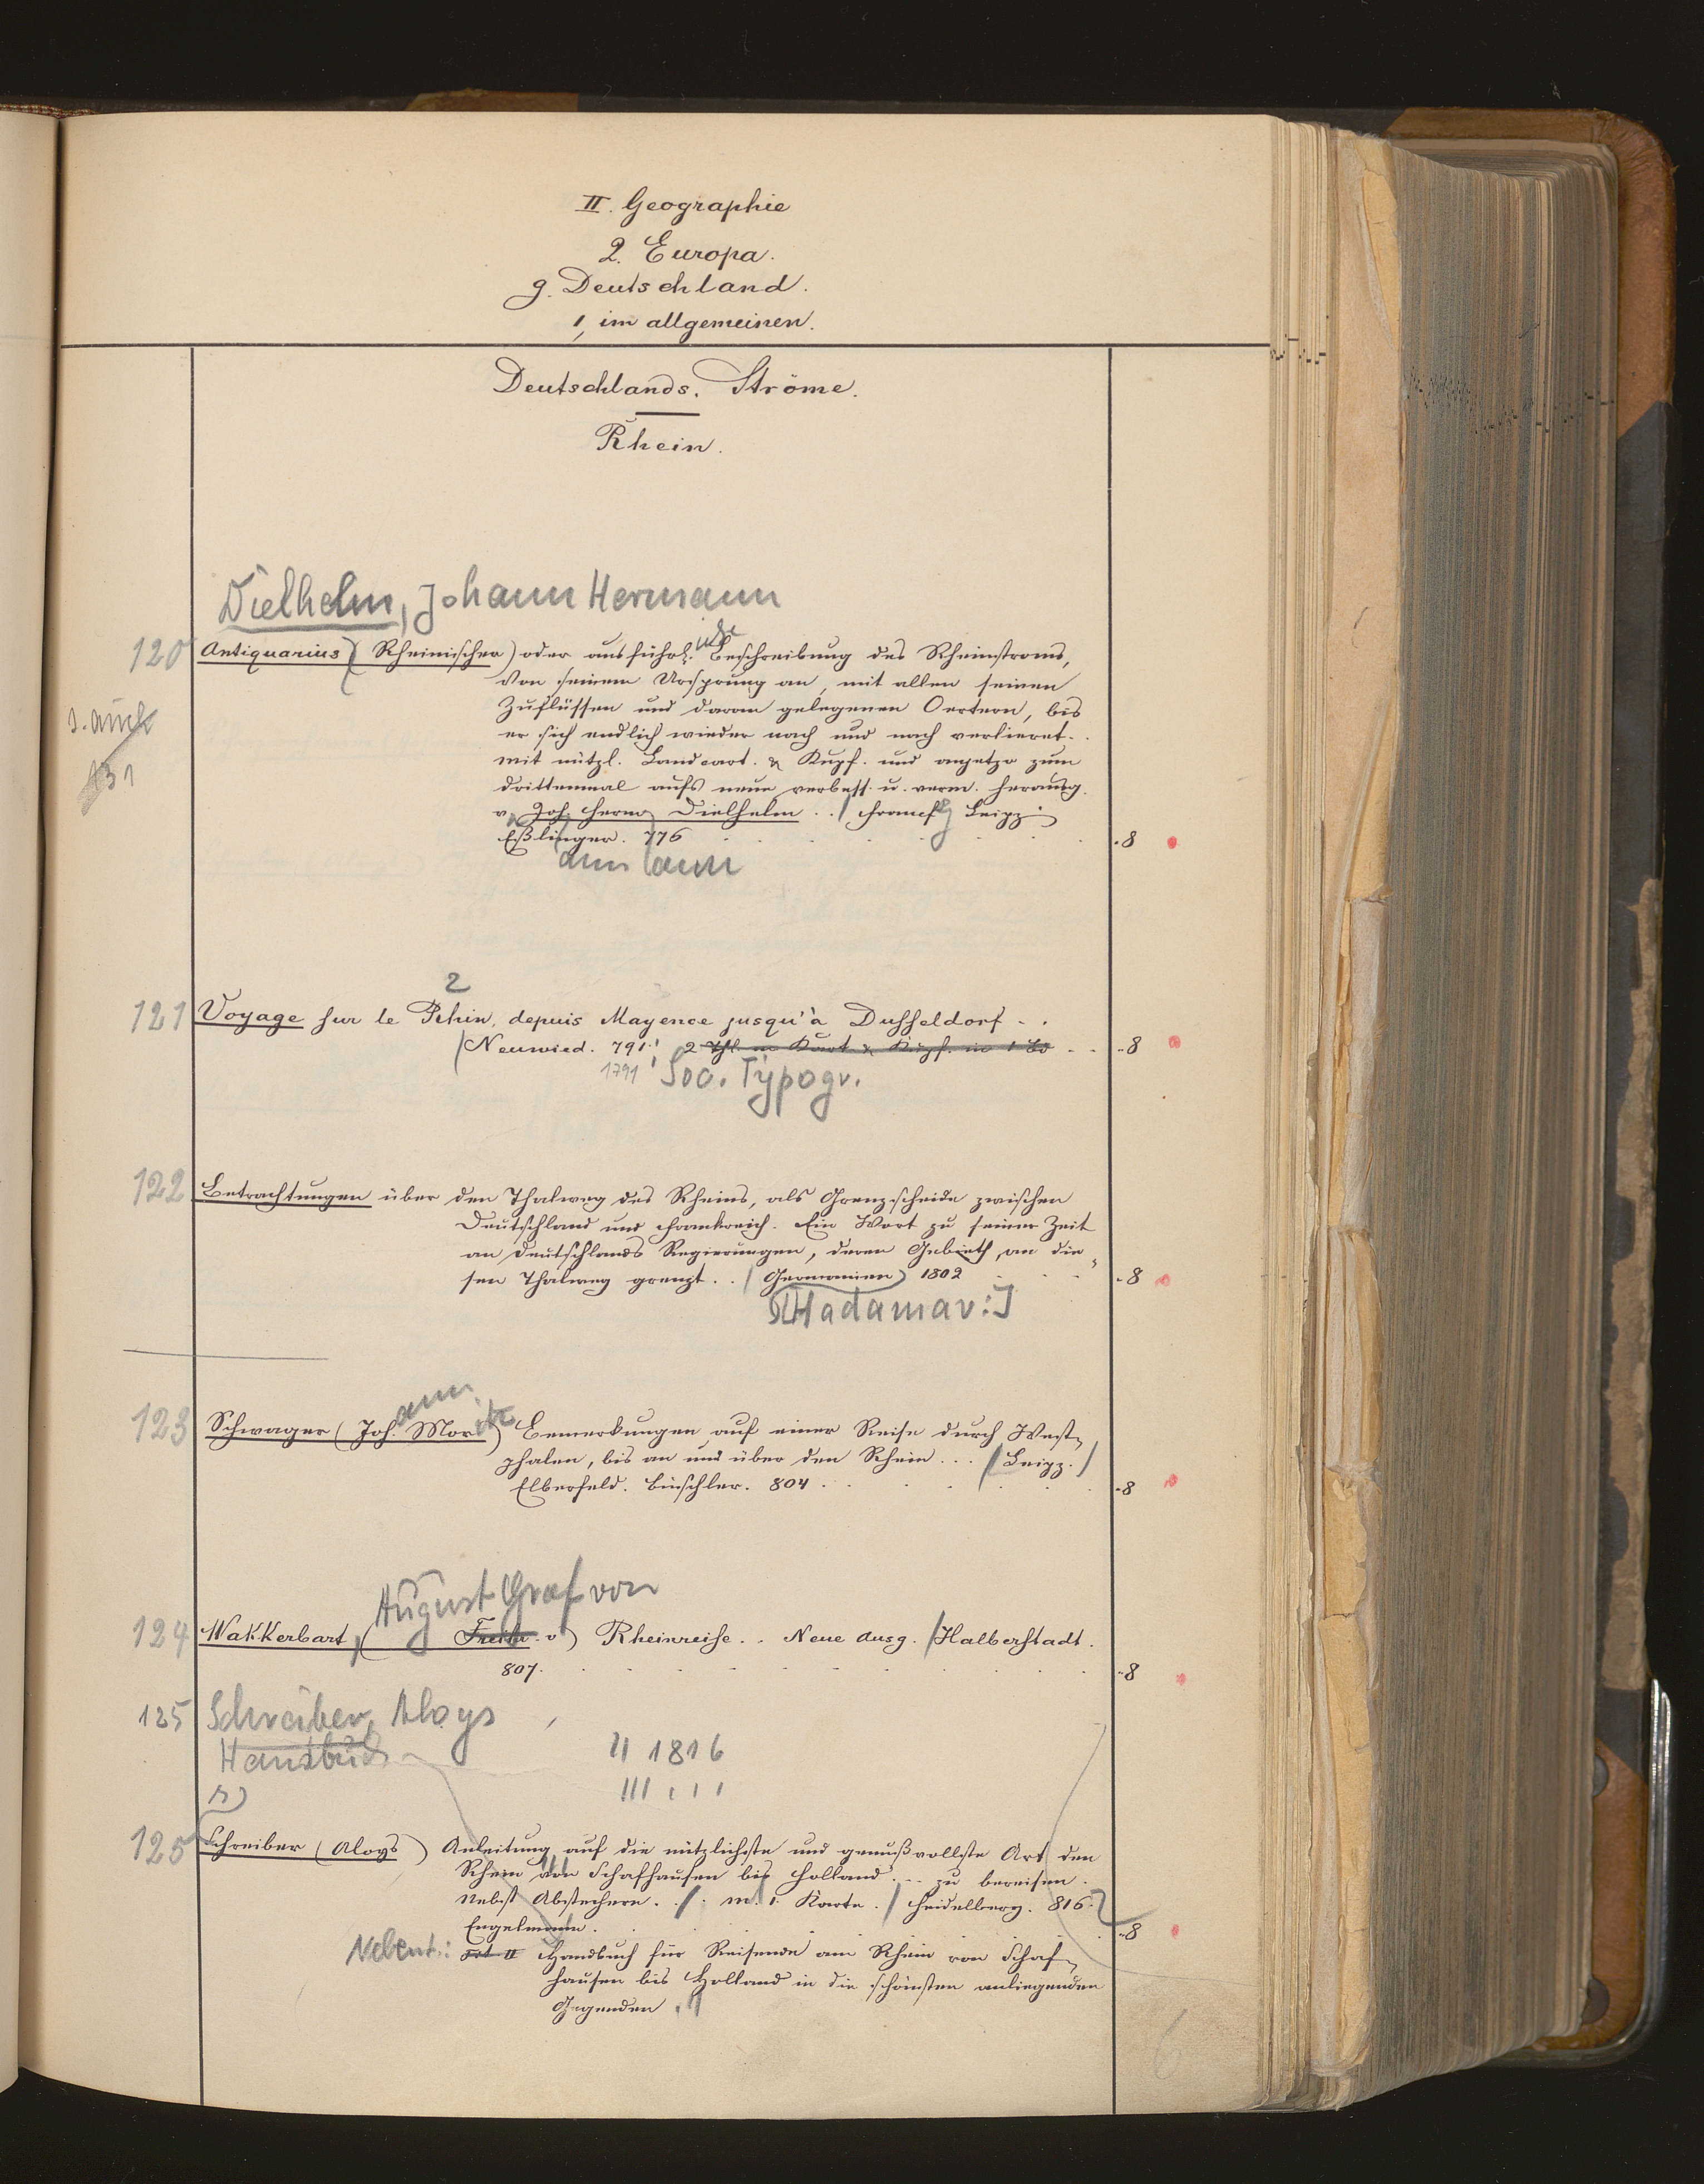 II. Geographie
2. Europa.
g. Deutschland.
1, im allgemeinen.
Deutschlands. Ströme.
Rhein.
Dielhelm, Johann Hermann
120 Antiquarius (Rheinischer) oder ausführl. Beschreibung des Rheinstroms,
von seinem Ursprung an, mit allen seinen
Zuflüssen und daran gelegenen Oertern, bis
er sich endlich wieder nach und nach verlieret.
s. auch
131
mit nützl. Landcart. & Kupf. und anjetzo zum
drittenmal aufs neue verbess. u. verm. herausg.
v. Joh. Herm. Dielhelm .. / Francf. Leipz
Eßlinger. 776 . 8
ann mann
2
121 Voyage sur le Rhin, depuis Mayence jusqu'à Dusseldorf ..
/ Neuwied. 791. 2 Thl. m Kart. & Kupf. in 1 Bd .. 8
1791 Soc. Typogr.
122 Betrachtungen über den Thalweg des Rheins, als Grenzscheide zwischen
Deutschland und Frankreich. Ein Wort zu seiner Zeit
an Deutschlands Regierungen, deren Gebieth, an die-
sen Thalweg grenzt .. / Germanien) 1802 . 8
[Hadamar:]
ann
123 Schwager (Joh. Moritz) Bemerkungen auf einer Reise durch West-
phalen, bis an und über den Rhein ... / Leipz. /
Elberfeld. Büschler. 804 . 8
August Graf von
124 Wakkerbart, (Freihr. v) Rheinreise .. Neue Ausg. / Halberstadt.
807. . 8
125 Schreiber, Aloys
Handbuch II 1816
III " " "
125 Schreiber (Aloys) Anleitung auf die nützlichste und genußvollste Art den
Rhein von Schafhausen bis Holland ... zu bereisen.
Nebst Abstechern .. / . m. 1. Karte. / Heidelberg. 816.
Engelmann. . 8
Nebent.: Handbuch für Reisende am Rhein von Schaf-
hausen bis Holland in die schönsten anliegenden
Gegenden.
6